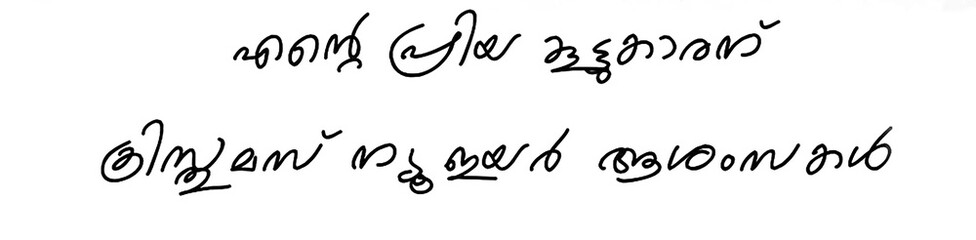 എന്റെ പ്രിയ കൂട്ടുകാരന്
ക്രിസ്തുമസ് ന്യൂഇയർ ആശംസകൾ